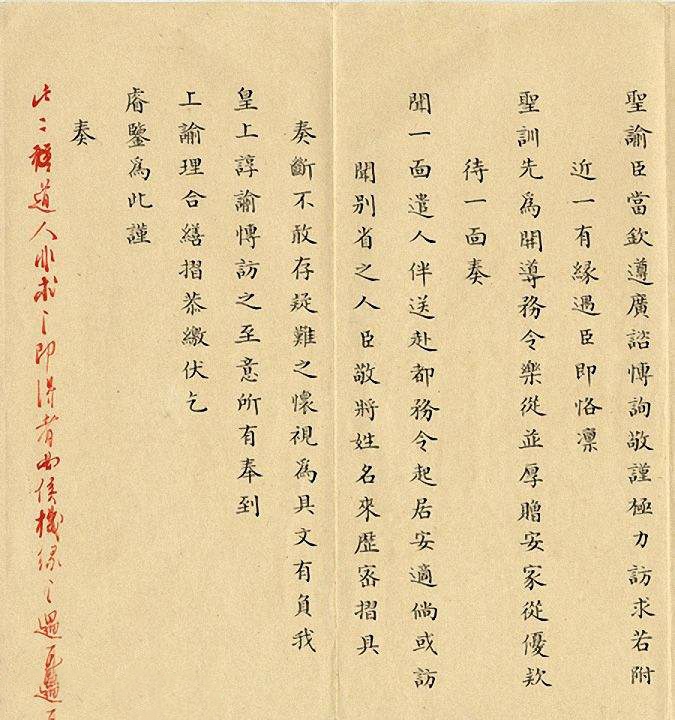 聖諭臣當欽遵廣諮愽詢敬謹極力訪求若附
近一有緣遇臣即恪凜
聖訓先爲開導務令樂從並厚贈安家從優欵
待一面奏
聞一面遣人伴送赴都務令起居安適倘或訪
聞別省之人臣敬將姓名來歷密摺具
奏斷不敢存疑難之懷視爲具文有負我
皇上諄諭愽訪之至意所有奉到
上諭理合繕摺恭繳伏乞
睿鑒爲此謹
奏
道人非求之即得者俟機緣之遇